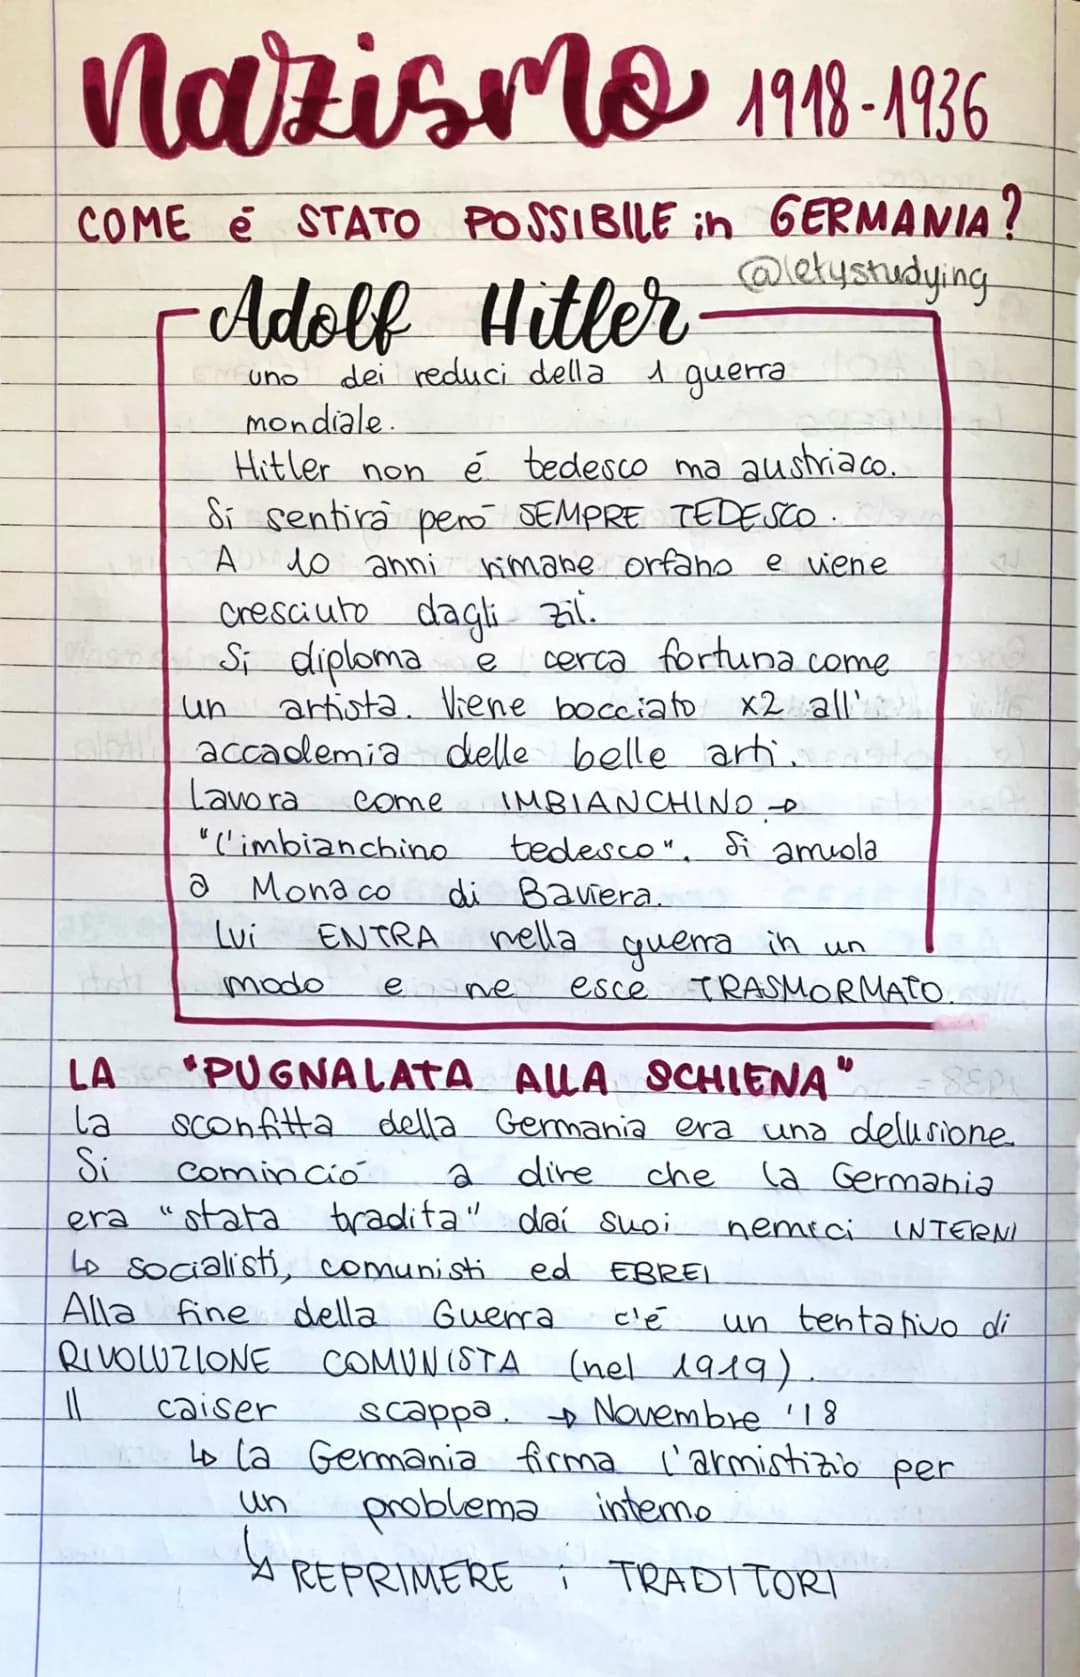 nazismo 1918-1936
COME é STATO POSSIBILE in GERMANIA?
@letystudying
Adolf Hitler
uno dei reduci della 1 guerra
mondiale.
Hitler non é tedesco ma austriaco.
Si sentirà però SEMPRE TEDESCO.
A 10 anni rimane orfano e viene
cresciuto dagli zii.
Si diploma e cerca fortuna come
un artista. Viene bocciato x2 all'
accademia delle belle arti.
Lavora come IMBIANCHINO →
"l'imbianchino tedesco". Si arruola
a Monaco di Baviera.
Lui ENTRA nella guerra in un
modo e ne esce TRASMORMATO.
LA "PUGNALATA ALLA SCHIENA"
La sconfitta della Germania era una delusione.
Si cominciò a dire che la Germania
era "stata tradita" dai suoi nemici INTERNI
↳ socialisti, comunisti ed EBREI
Alla fine della Guerra c'é un tentativo di
RIVOLUZIONE COMUNISTA (nel 1919).
Il caiser scappa. → Novembre '18
↳ la Germania firma l'armistizio per
un problema interno
↳ REPRIMERE i TRADITORI